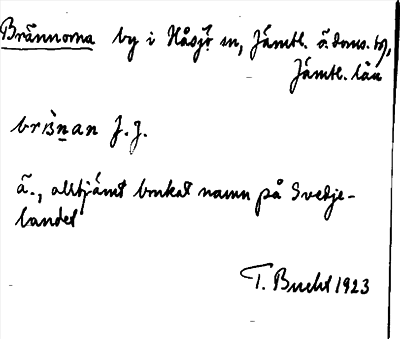 Brännorna by i Håsjö sn, Jämtl. ö. doms. tg,
Jämtl. län
J. J.
ä., alltjämt brukat namn på Svedje-
landet
T. Bucht 1923